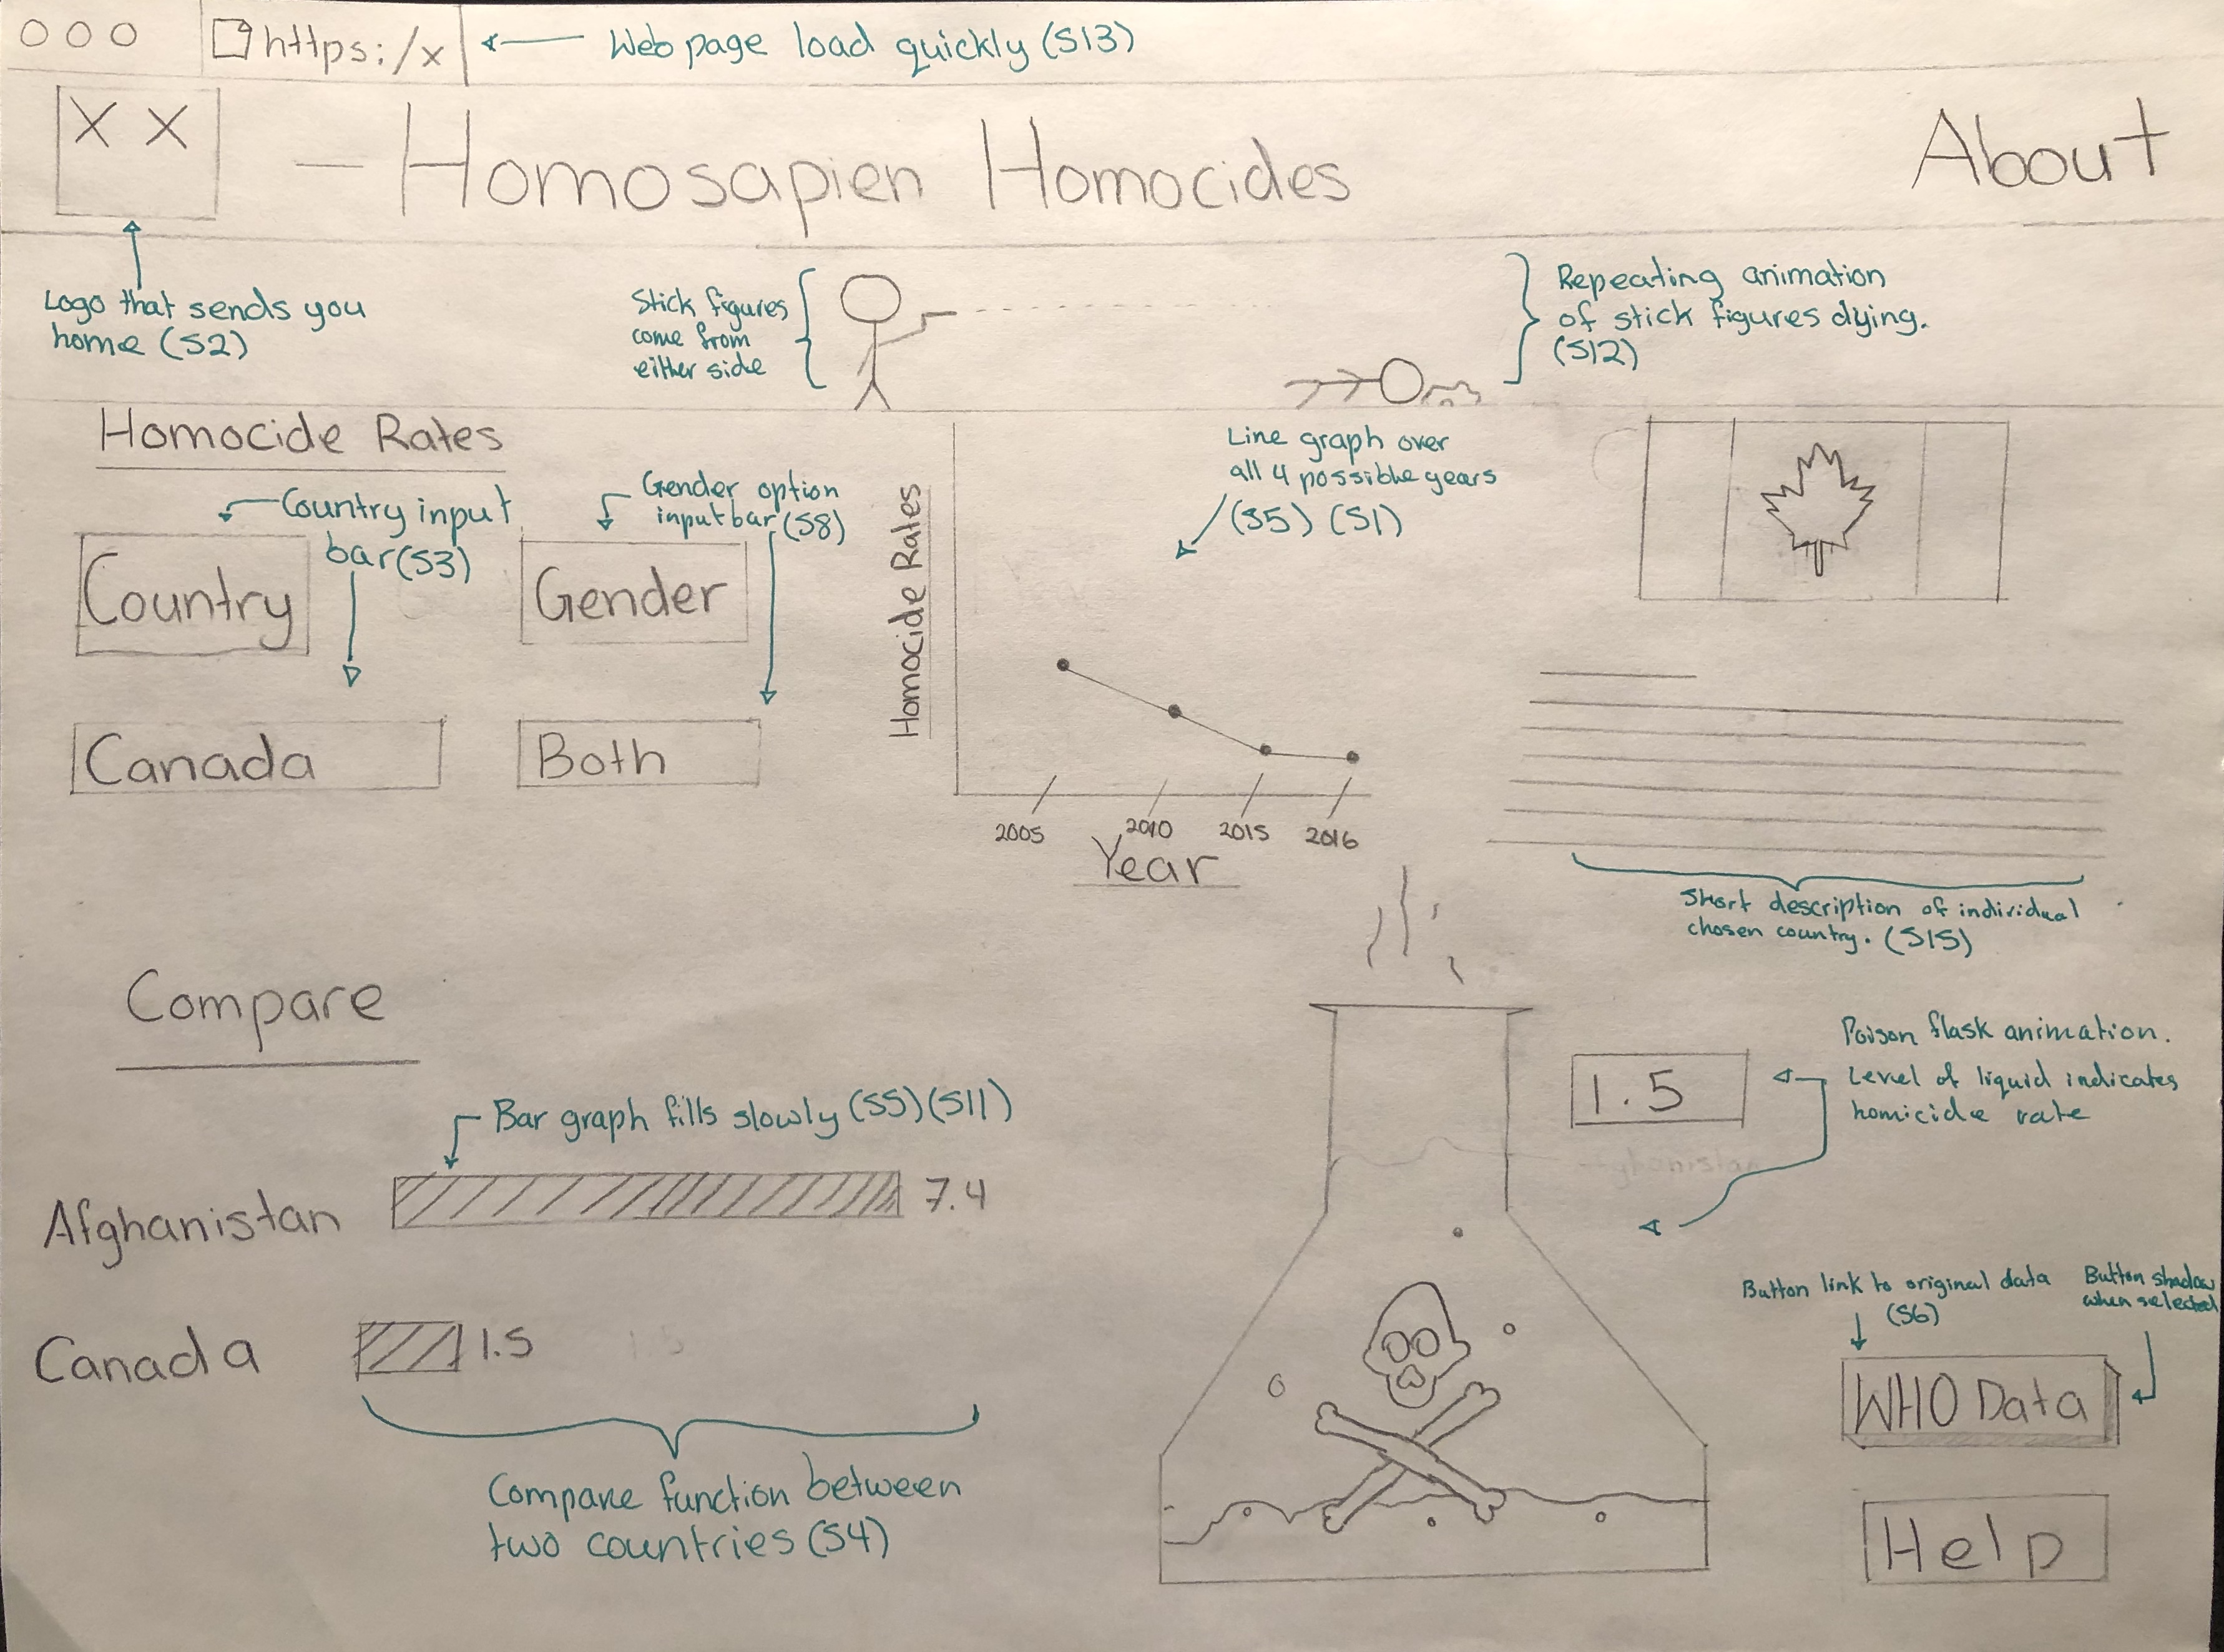 https:/x
Web page load quickly (S13)
X X
- Homosapien Homocides
About
Logo that sends you
home (S2)
Stick figures
come from
either side
Repeating animation
of stick figures dying.
(S12)
Homocide Rates
Country input
bar (S3)
Gender option
input bar (S8)
Country
Gender
Canada
Both
Homocide Rates
Line graph over
all 4 possible years
(S5) (S1)
2005 2010 2015 2016
Year
Short description of individual
chosen country. (S15)
Compare
Bar graph fills slowly (S5) (S11)
Afghanistan
7.4
Canada
1.5
Compare function between
two countries (S4)
1.5
Poison flask animation.
Level of liquid indicates
homicide rate
Afghanistan
Button link to original data
(S6)
Button shadow
when selected
WHO Data
Help